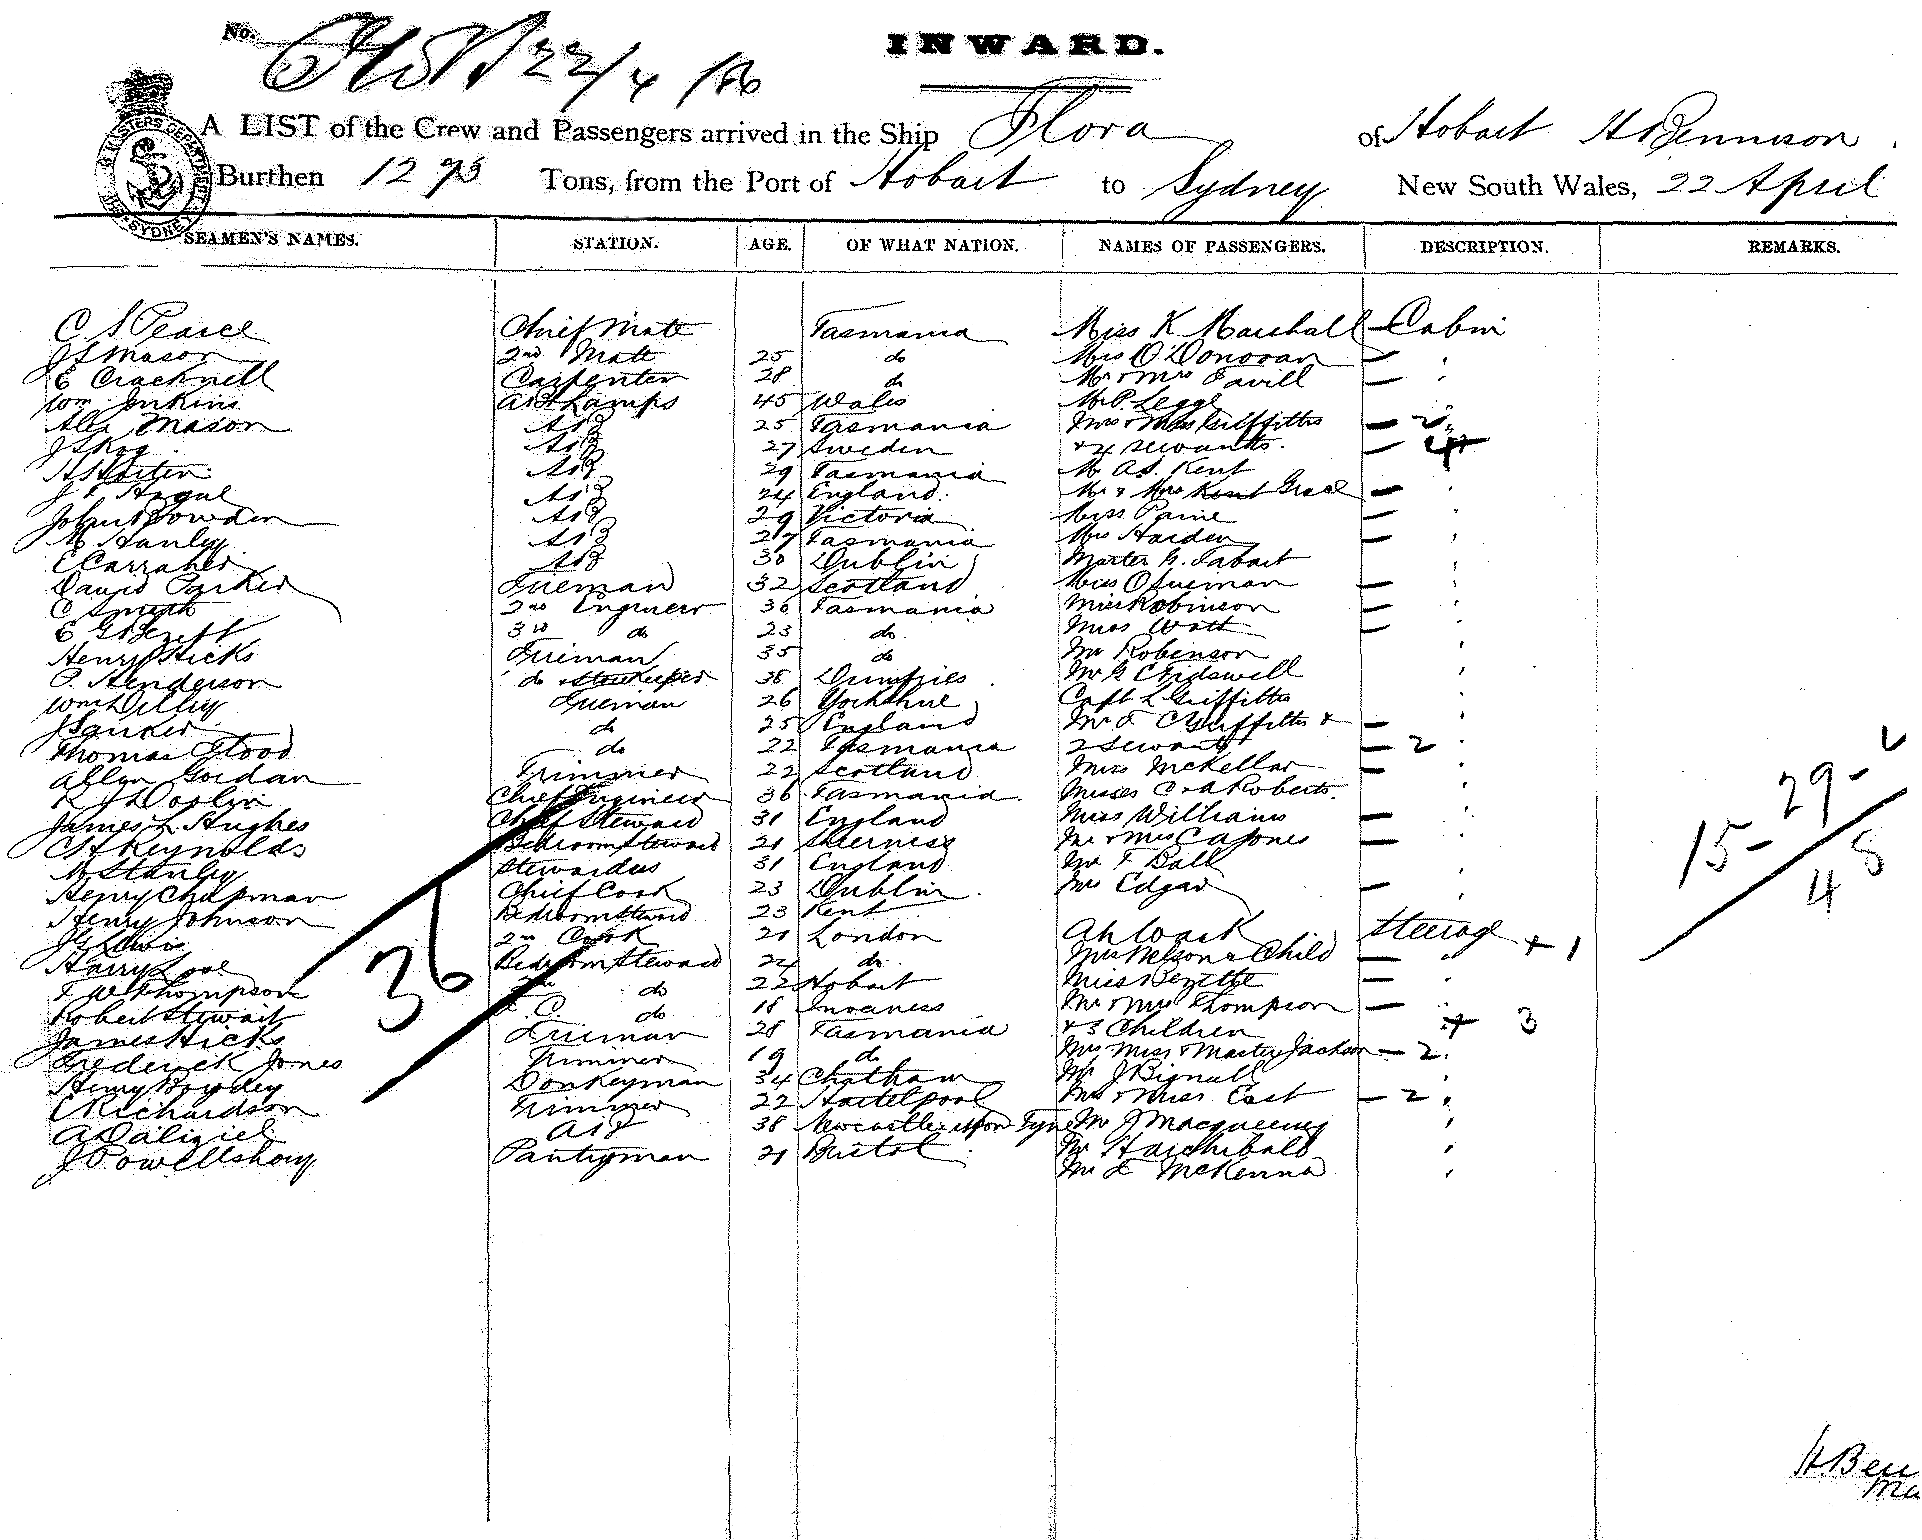 No. 22/4/86
INWARD.
A LIST of the Crew and Passengers arrived in the Ship Flora of Hobart H Bennison
Burthen 1293 Tons, from the Port of Hobart to Sydney New South Wales, 22 April
SEAMEN'S NAMES. STATION. AGE. OF WHAT NATION. NAMES OF PASSENGERS. DESCRIPTION. REMARKS.
C S Pearce Chief Mate Tasmania Miss K Marshall Cabin
J S Mason 2nd Mate 25 do Mrs O'Donovan
E Cracknell Carpenter 28 do Mr & Mrs Favill
Wm Jenkins AB & Lamps 45 Wales Mr P. Legge
Alex Mason AB 25 Tasmania Mrs & Miss Griffiths 2
AB 27 Sweden & 4 servants 4
AB 29 Tasmania Mr A S. Kent
AB 24 England Mr & Mrs Kent Grace
John Bowden AB 29 Victoria Miss Paine
M Stanley AB 27 Tasmania Mrs Harden
E Carraher AB 30 Dublin Master G. Tabart
David Parker Fireman 32 Scotland Miss
C Smith 2nd Engineer 36 Tasmania Miss Robinson
3rd do 23 do Miss Watt
Henry Hicks Fireman 35 do Mr Robinson
P. Henderson do & Storekeeper 38 Dumfries Mr G Chidswell
Wm Dilley Fireman 26 Yorkshire Capt L Griffiths
do 25 England Mr F C Griffiths &
Thomas Flood do 22 Tasmania 2 servants 2
Allan Gordan Trimmer 22 Scotland Miss McKellar
Chief Engineer 36 Tasmania Misses C & A Roberts
James L. Hughes Chief Steward 31 England Miss Williams
C H Reynolds Bedroom Steward 21 Sheerness Mr & Mrs C A Jones
M Stanley Stewardess 31 England Mr F Ball
Henry Chapman Chief Cook 23 Dublin Mrs Edgar
Henry Johnson Bedroom Steward 23 Kent
J G Lewis 2nd Cook 21 London Ah Wack Steerage
Harry Bedroom Steward 24 do Mrs Nelson & Child + 1
F W Thompson 2nd do 22 Hobart Miss
Robert Stewart F. C. do 18 Inverness Mr & Mrs Thompson
James Hicks Fireman 28 Tasmania & 3 Children + 3
Frederick Jones Trimmer 19 do Mrs Miss & Master Jackson 2
Henry Donkeyman 34 Chatham Mr J Bignall
C Richardson Trimmer 22 Hartelpool Mrs & Miss East 2
A Dalziel 38 Newcastle upon Tyne Mr J Macqueeney
J Powell Pantryman 21 Bristol Mr H Archibald
Mr McKenna
36
15 - 29 -
4 8
H Ben
Ma